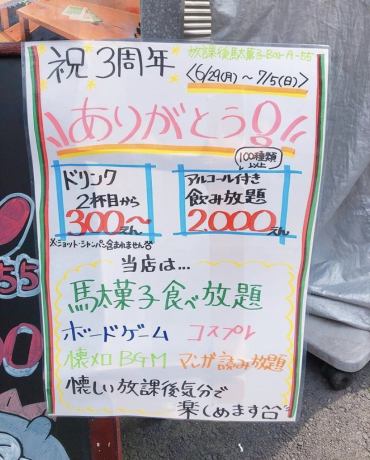 祝3周年
放課後駄菓子BAR A-55
<6/29(月)~7/5(日)>
ありがとう!!
ドリンク
2杯目から
300~えん
100種類以上
アルコール付き
飲み放題
2,000えん
※ショット・シャンパン含まれません
当店は...
馬太菓子食べ放題
ボードゲーム コスプレ
懐メロBGM マンガ読み放題
懐しい放課後気分で
楽しめます
55